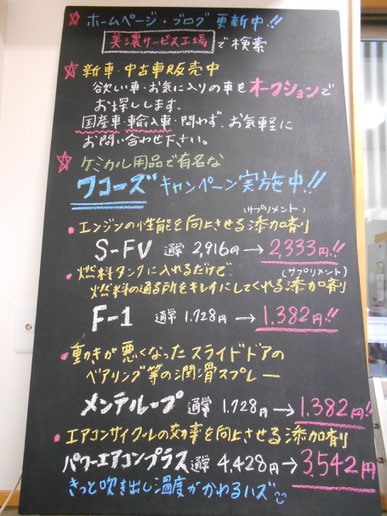 ☆ ホームページ・ブログ 更新中!!
美濃サービス工場で検索
☆ 新車・中古車販売中
欲しい車・お気に入りの車をオークションで
お探しします。
国産車・輸入車・問わず、お気軽に
お問い合わせ下さい。
☆ ケミカル用品で有名な
ワコーズキャンペーン実施中!!
(サプリメント)
・エンジンの性能を向上させる添加剤
S-FV 通常 2,916円→2,333円!!
(サプリメント)
・燃料タンクに入れるだけで
燃料の通る所をキレイにしてくれる添加剤
F-1 通常 1,728円→1,382円!!
・動きが悪くなったスライドドアの
ベアリング等の潤滑スプレー
メンテループ 通常 1,728円→1,382円!!
・エアコンサイクルの効率を向上させる添加剤
パワーエアコンプラス 通常 4,428円→3,542円
きっと吹き出し温度がかわるハズ